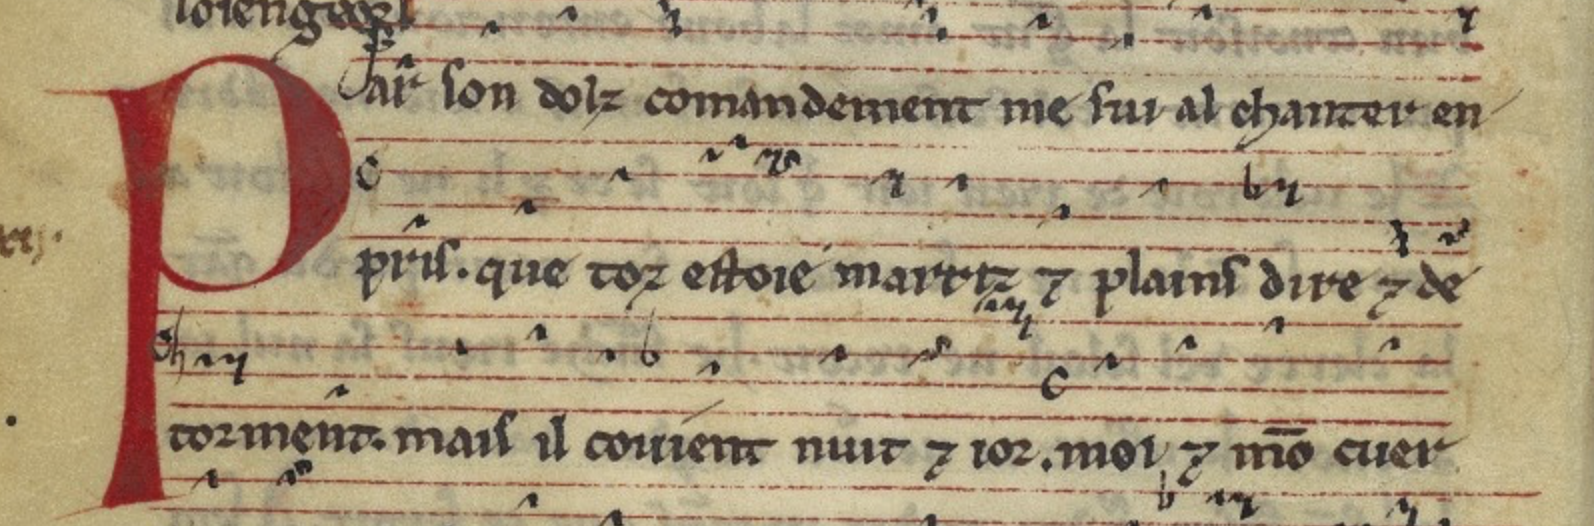 loiengeor
Par son dolz comandement me sui al chanter en
pris. que toz estoie martriz ⁊ plains dire ⁊ de
torment. mais il couient nuit ⁊ ior. moi ⁊ mō cuer